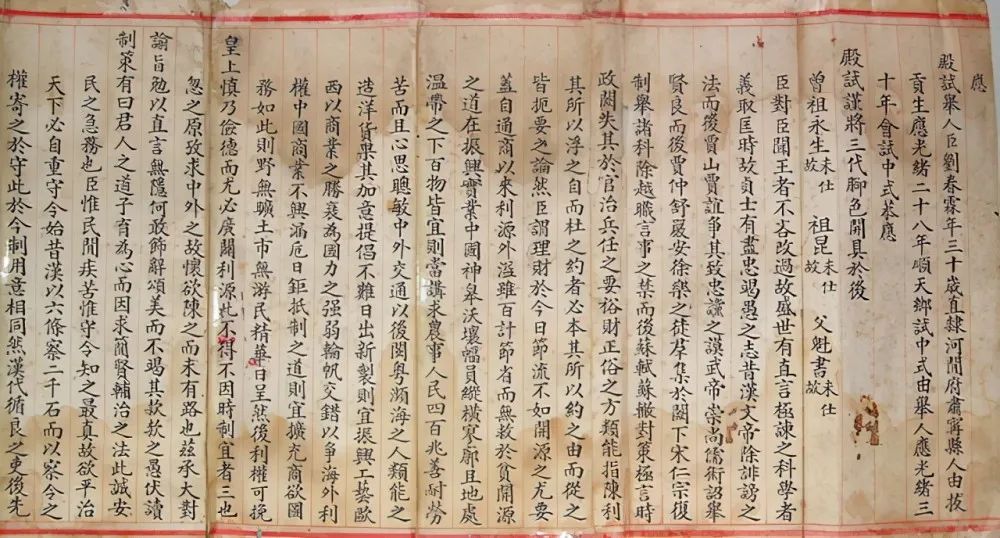 應
殿試舉人臣劉春霖年三十歲直隸河間府肅寧縣人由拔
貢生應光緒二十八年順天鄉試中式由舉人應光緒三
十年會試中式恭應
殿試謹將三代腳色開具於後
曾祖永生未仕故 祖昆未仕故 父魁書未仕故
臣對臣聞王者不吝改過故盛世有直言極諫之科學者
義取匡時故貢士有盡忠竭愚之志昔漢文帝除誹謗之
法而後賈山賈誼爭其致忠讜之謨武帝崇尚儒術詔舉
賢良而後賈仲舒嚴安徐樂之徒羣集於闕下宋仁宗復
制舉諸科除越職言事之禁而後蘇軾蘇轍對策極言時
政闕失其於官治兵任之要裕財正俗之方類能指陳利
其所以浮之自而杜之約者必本其所以約之由而從之
皆扼要之論然臣謂理財於今日節流不如開源之尤要
蓋自通商以來利源外溢雖百計節省而無救於貧開源
之道在振興實業中國神皋沃壤幅員縱橫寥廓且地處
溫帶之下百物皆宜則當講求農事人民四百兆善耐勞
苦而且心思聰敏中外交通以後閩粵瀕海之人類能之
造洋貨果其加意提倡不難日出新製則宜振興工藝歐
西以商業之勝衰為國力之强弱輪帆交錯以爭海外利
權中國商業不興漏卮日鉅抵制之道則宜擴充商欲圖
務如此則野無曠土市無游民精華日呈然後利權可挽
皇上慎乃儉德而尤必廣闢利源此不得不因時制宜者三也
忽之原致求中外之故懷欲陳之而未有路也茲承大對
諭旨勉以直言無隱何敢飾辭頌美而不竭其款款之愚伏讀
制策有曰君人之道子育為心而因求簡賢輔治之法此誠安
民之急務也臣惟民間疾苦惟守令知之最真故欲平治
天下必自重守令始昔漢以六條察二千石而以察令之
權寄之於守此於今制用意相同然漢代循良之吏後先